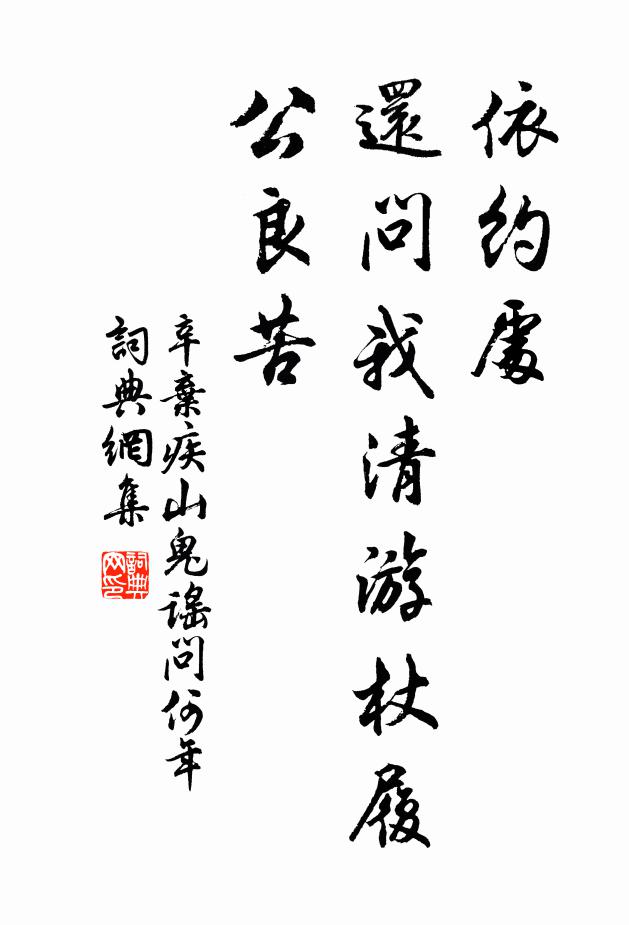 依約處
還問我清游杖履
公良苦
辛棄疾山鬼謠問何年
詞典網集
詞典
网印